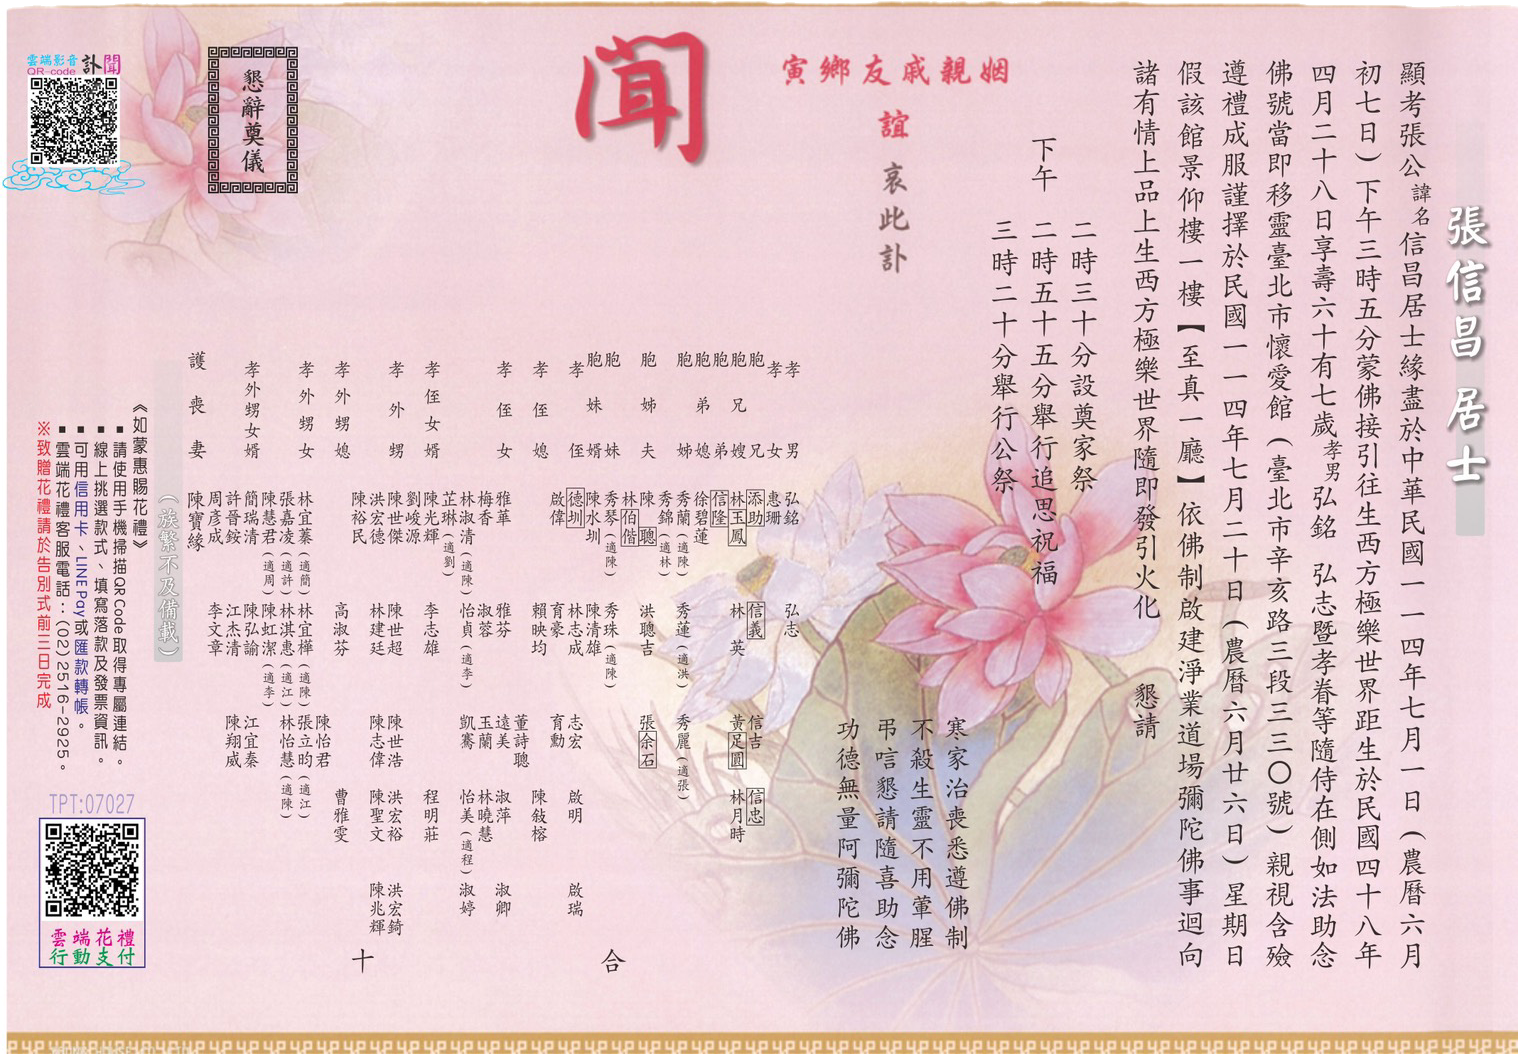 張信昌 居士
顯考張公諱名信昌居士緣盡於中華民國一一四年七月一日(農曆六月
初七日)下午三時五分蒙佛接引往生西方極樂世界距生於民國四十八年
四月二十八日享壽六十有七歲孝男弘銘 弘志暨孝眷等隨侍在側如法助念
佛號當即移靈臺北市懷愛館(臺北市辛亥路三段三三〇號)親視含殮
遵禮成服謹擇於民國一一四年七月二十日(農曆六月廿六日)星期日
假該館景仰樓一樓【至真一廳】依佛制啟建淨業道場彌陀佛事迴向
諸有情上品上生西方極樂世界隨即發引火化 懇請
二時三十分設奠家祭
下午 二時五十五分舉行追思祝福
三時二十分舉行公祭
寒家治喪悉遵佛制
不殺生靈不用葷腥
弔唁懇請隨喜助念
功德無量阿彌陀佛
姻親戚友鄉寅
誼
哀此訃
聞
孝男 弘銘 弘志
孝女 惠珊
胞兄 添助 信義 信吉 信忠
胞兄嫂 林玉鳳 林英 黃足圓 林月時
胞弟 信隆
胞弟媳 徐碧蓮
胞姊 秀蘭(適陳) 秀蓮(適洪) 秀麗(適張)
秀錦(適林)
胞姊夫 陳聰 洪聰吉 張余石
林伯偕
胞妹 秀琴(適陳) 秀珠(適陳)
胞妹婿 陳水圳 陳清雄
孝侄 德圳 林志成 志宏 啟明 啟瑞
啟偉 育豪 育勳
孝侄媳 賴映均 陳敍榕
董詩聰
孝侄女 雅華 雅芬 遠美 淑萍 淑卿
梅香 淑蓉 玉蘭 林曉慧
林淑清(適陳) 怡貞(適李) 凱騫 怡美(適程) 淑婷
芷琳(適劉)
孝侄女婿 陳光輝 李志雄 程明莊
劉峻源
孝外甥 陳世傑 陳世超 陳世浩 洪宏裕 洪宏錡
洪宏德 林建廷 陳志偉 陳聖文 陳兆輝
陳裕民
孝外甥媳 高淑芬 曹雅雯
陳怡君
孝外甥女 林宜蓁(適簡) 林宜樺(適陳) 張立昀(適江)
張嘉凌(適許) 林淇惠(適江) 林怡慧(適陳)
陳慧君(適周) 陳虹潔(適李)
孝外甥女婿 簡瑞清 陳弘諭 江宜秦
許晉銨 江杰清 陳翔威
周彦成 李文章
護喪妻 陳寶緣
合十
(族繁不及備載)
懇辭奠儀
雲端影音
QR-code
訃聞
《如蒙惠賜花禮》
■請使用手機掃描QRCode取得專屬連結。
■線上挑選款式、填寫落款及發票資訊。
■可用信用卡、LINE Pay或匯款轉帳。
■雲端花禮客服電話:(02)2516-2925。
※致贈花禮請於告別式前三日完成
TPT:07027
雲端花禮
行動支付